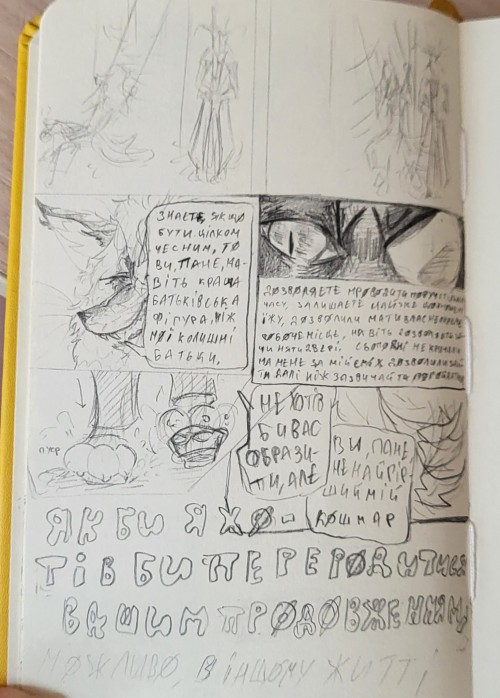 ЗНАЄТЕ, ЯКЩО
БУТИ ЦІЛКОМ
ЧЕСНИМ, ТО
ВИ, ПАНЕ, НА-
ВІТЬ КРАЩА
БАТЬКІВСЬКА
ФІГУРА, НІЖ
МОЇ КОЛИШНІ
БАТЬКИ,
ДОЗВОЛЯЄТЕ ПРОВОДИТИ
ЧАСУ, ЗАЛИШАЄТЕ МАЙЖЕ
ЇЖУ, ДОЗВОЛИЛИ МАТИ ВЛАСНЕ
РОБОЧЕ МІСЦЕ, НАВІТЬ
ДВЕРІ. СЬОГОДНІ НЕ КРИЧАЛИ
НА МЕНЕ ЗА МІЙ ДОЗВОЛИЛИ
ТА ДАЛІ НІЖ ЗАЗВИЧАЙ ТА
НЕ ХОТІВ
БИ ВАС
ОБРАЗИ-
ТИ, АЛЕ
ВИ, ПАНЕ,
НЕ НАЙГІР-
ШИЙ МІЙ
КОШМАР
ЯКБИ Я ХО-
ТІВ БИ ПЕРЕРОДИТИСЯ
ВАШИМ ПРОДОВЖЕННЯМ,
МОЖЛИВО, В ІНШОМУ ЖИТТІ